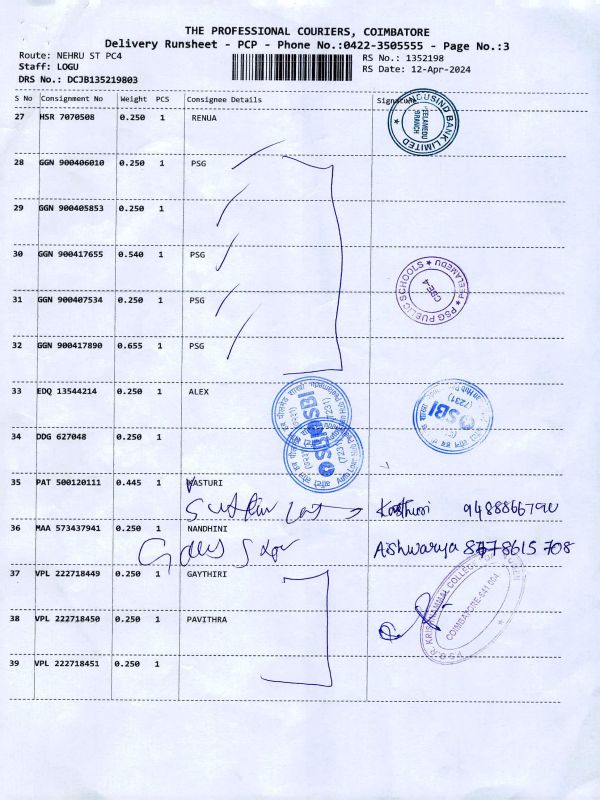 THE PROFESSIONAL COURIERS, COIMBATORE
Delivery Runsheet - PCP - Phone No.:0422-3505555 - Page No.:3
Route: NEHRU ST PC4
Staff: LOGU
DRS No.: DCJB135219803
RS No.: 1352198
RS Date: 12-Apr-2024
S No Consignment No Weight PCS Consignee Details Signature
27 HSR 7070508 0.250 1 RENUA
INDUSIND BANK LIMITED
PEELAMEDU BRANCH
28 GGN 900406010 0.250 1 PSG
29 GGN 900405853 0.250 1
30 GGN 900417655 0.540 1 PSG
31 GGN 900407534 0.250 1 PSG
PSG PUBLIC SCHOOLS ★ PEELAMEDU ★
CBE-4
32 GGN 900417890 0.655 1 PSG
33 EDQ 13544214 0.250 1 ALEX
SBI
(7231)
SBI
(7231)
34 DDG 627048 0.250 1
35 PAT 500120111 0.445 1 KASTURI
Kasthuri 9488866790
36 MAA 573437941 0.250 1 NANDHINI
Aishwarya 8778615708
37 VPL 222718449 0.250 1 GAYTHIRI
38 VPL 222718450 0.250 1 PAVITHRA
COIMBATORE-641 004
39 VPL 222718451 0.250 1